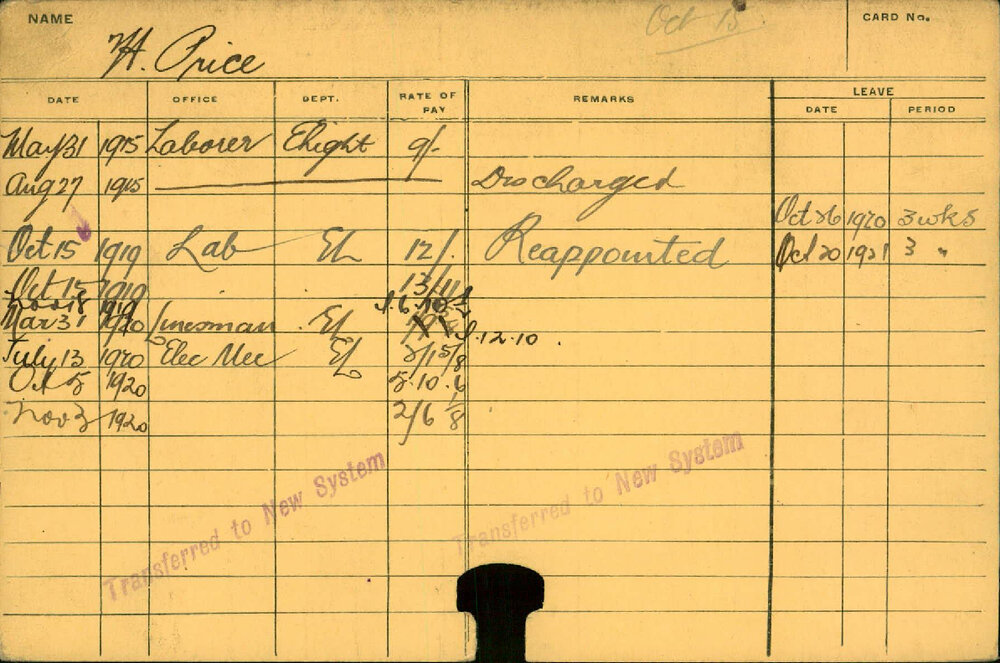 NAME
Oct 15.
CARD No.
H. Price
DATE OFFICE DEPT. RATE OF PAY REMARKS LEAVE
DATE PERIOD
May 31 1915 Laborer Elight 9/-
Aug 27 1915 Discharged
Oct 26 1920 3 wks
Oct 15 1919 Lab EL 12/. Reappointed Oct 20 1921 3 "
Oct 15 1919 13/11
Nov 18 1919
Mar 31 1920 Linesman EL 12.10.
July 13 1920 Elec Mec EL 2/1 5/8
Oct 5 1920 5.10.6
Nov 3 1920 2/6 1/8
Transferred to New System
Transferred to New System